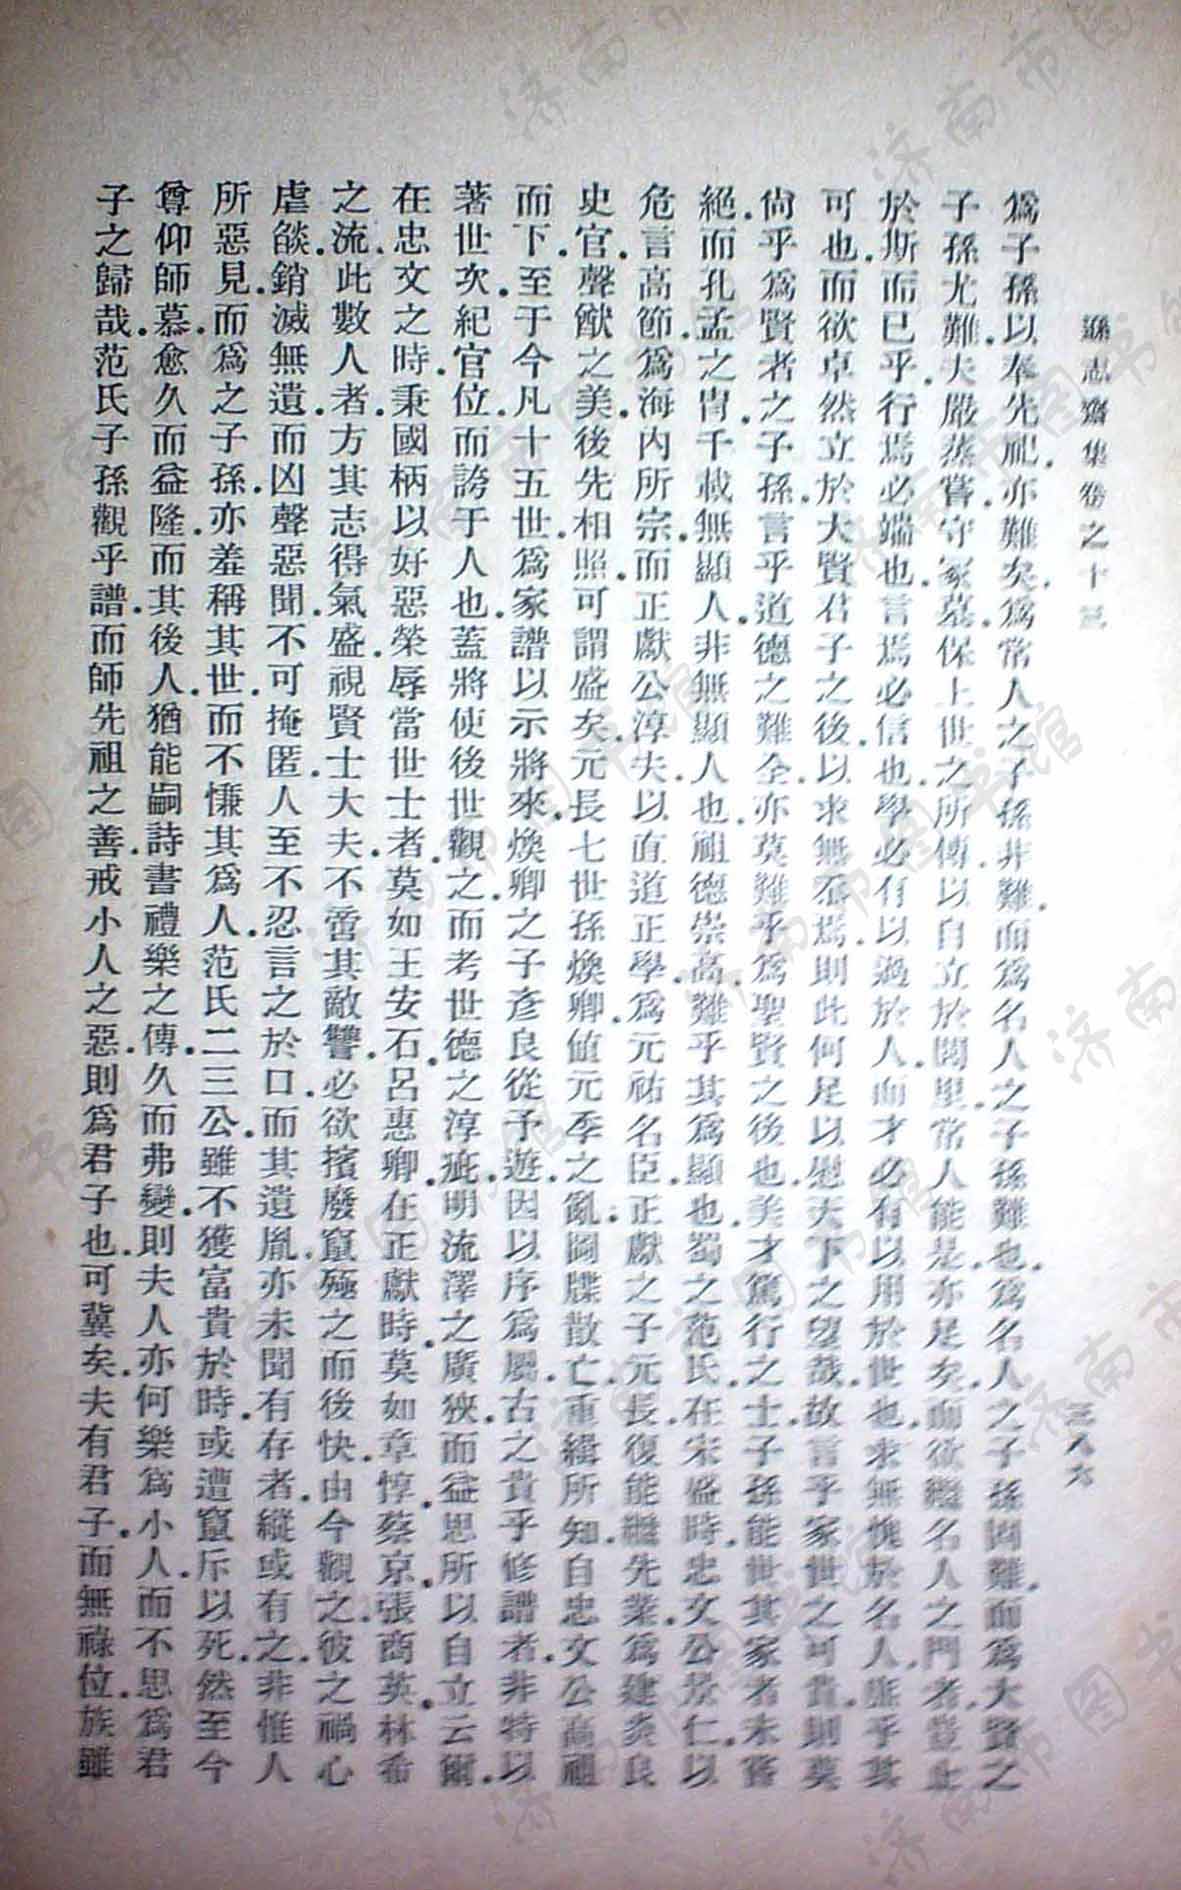 遜志齋集卷之十三 三八六
爲子孫以奉先祀。亦難矣。爲常人之子孫非難。而爲名人之子孫難也。爲名人之子孫固難。而爲大賢之
子孫尤難。夫嚴蒸嘗。守冢墓。保上世之所傳。以自立於閭里。常人能是。亦足矣。而欲繼名人之門者。豈止
於斯而已乎。行焉必端也。言焉必信也。學必有以過於人。而才必有以用於世也。求無愧於名人。庶乎其
可也。而欲卓然立於大賢君子之後。以求無忝焉。則此何足以慰天下之望哉。故言乎家世之可貴。則莫
尙乎爲賢者之子孫。言乎道德之難全。亦莫難乎爲聖賢之後也。美才篤行之士。子孫能世其家者。未嘗
絕。而孔孟之胄。千載無顯人。非無顯人也。祖德崇高。難乎其爲顯也。蜀之范氏。在宋盛時。忠文公景仁。以
危言高節。爲海內所宗。而正獻公淳夫。以直道正學。爲元祐名臣。正獻之子元長。復能繼先業。爲建炎良
史官。聲猷之美。後先相照。可謂盛矣。元長七世孫煥卿。値元季之亂。圖牒散亡。重緝所知。自忠文公高祖
而下。至于今凡十五世。爲家譜以示將來。煥卿之子彥良從予遊。因以序爲屬。古之貴乎修譜者。非特以
著世次。紀官位。而誇于人也。蓋將使後世觀之。而考世德之淳疵。明流澤之廣狹。而益思所以自立云爾。
在忠文之時。秉國柄以好惡榮辱當世士者。莫如王安石。呂惠卿。在正獻時。莫如章惇。蔡京。張商英。林希
之流。此數人者。方其志得氣盛。視賢士大夫。不啻其敵讐。必欲擯廢竄殛之而後快。由今觀之。彼之禍心
虐燄。銷滅無遺。而凶聲惡聞。不可掩匿。人至不忍言之於口。而其遺胤。亦未聞有存者。縱或有之。非惟人
所惡見。而爲之子孫。亦羞稱其世。而不慊其爲人。范氏二三公。雖不獲富貴於時。或遭竄斥以死。然至今
尊仰師慕。愈久而益隆。而其後人。猶能嗣詩書禮樂之傳。久而弗變。則夫人亦何樂爲小人。而不思爲君
子之歸哉。范氏子孫觀乎譜。而師先祖之善。戒小人之惡。則爲君子也。可冀矣。夫有君子。而無祿位。族雖